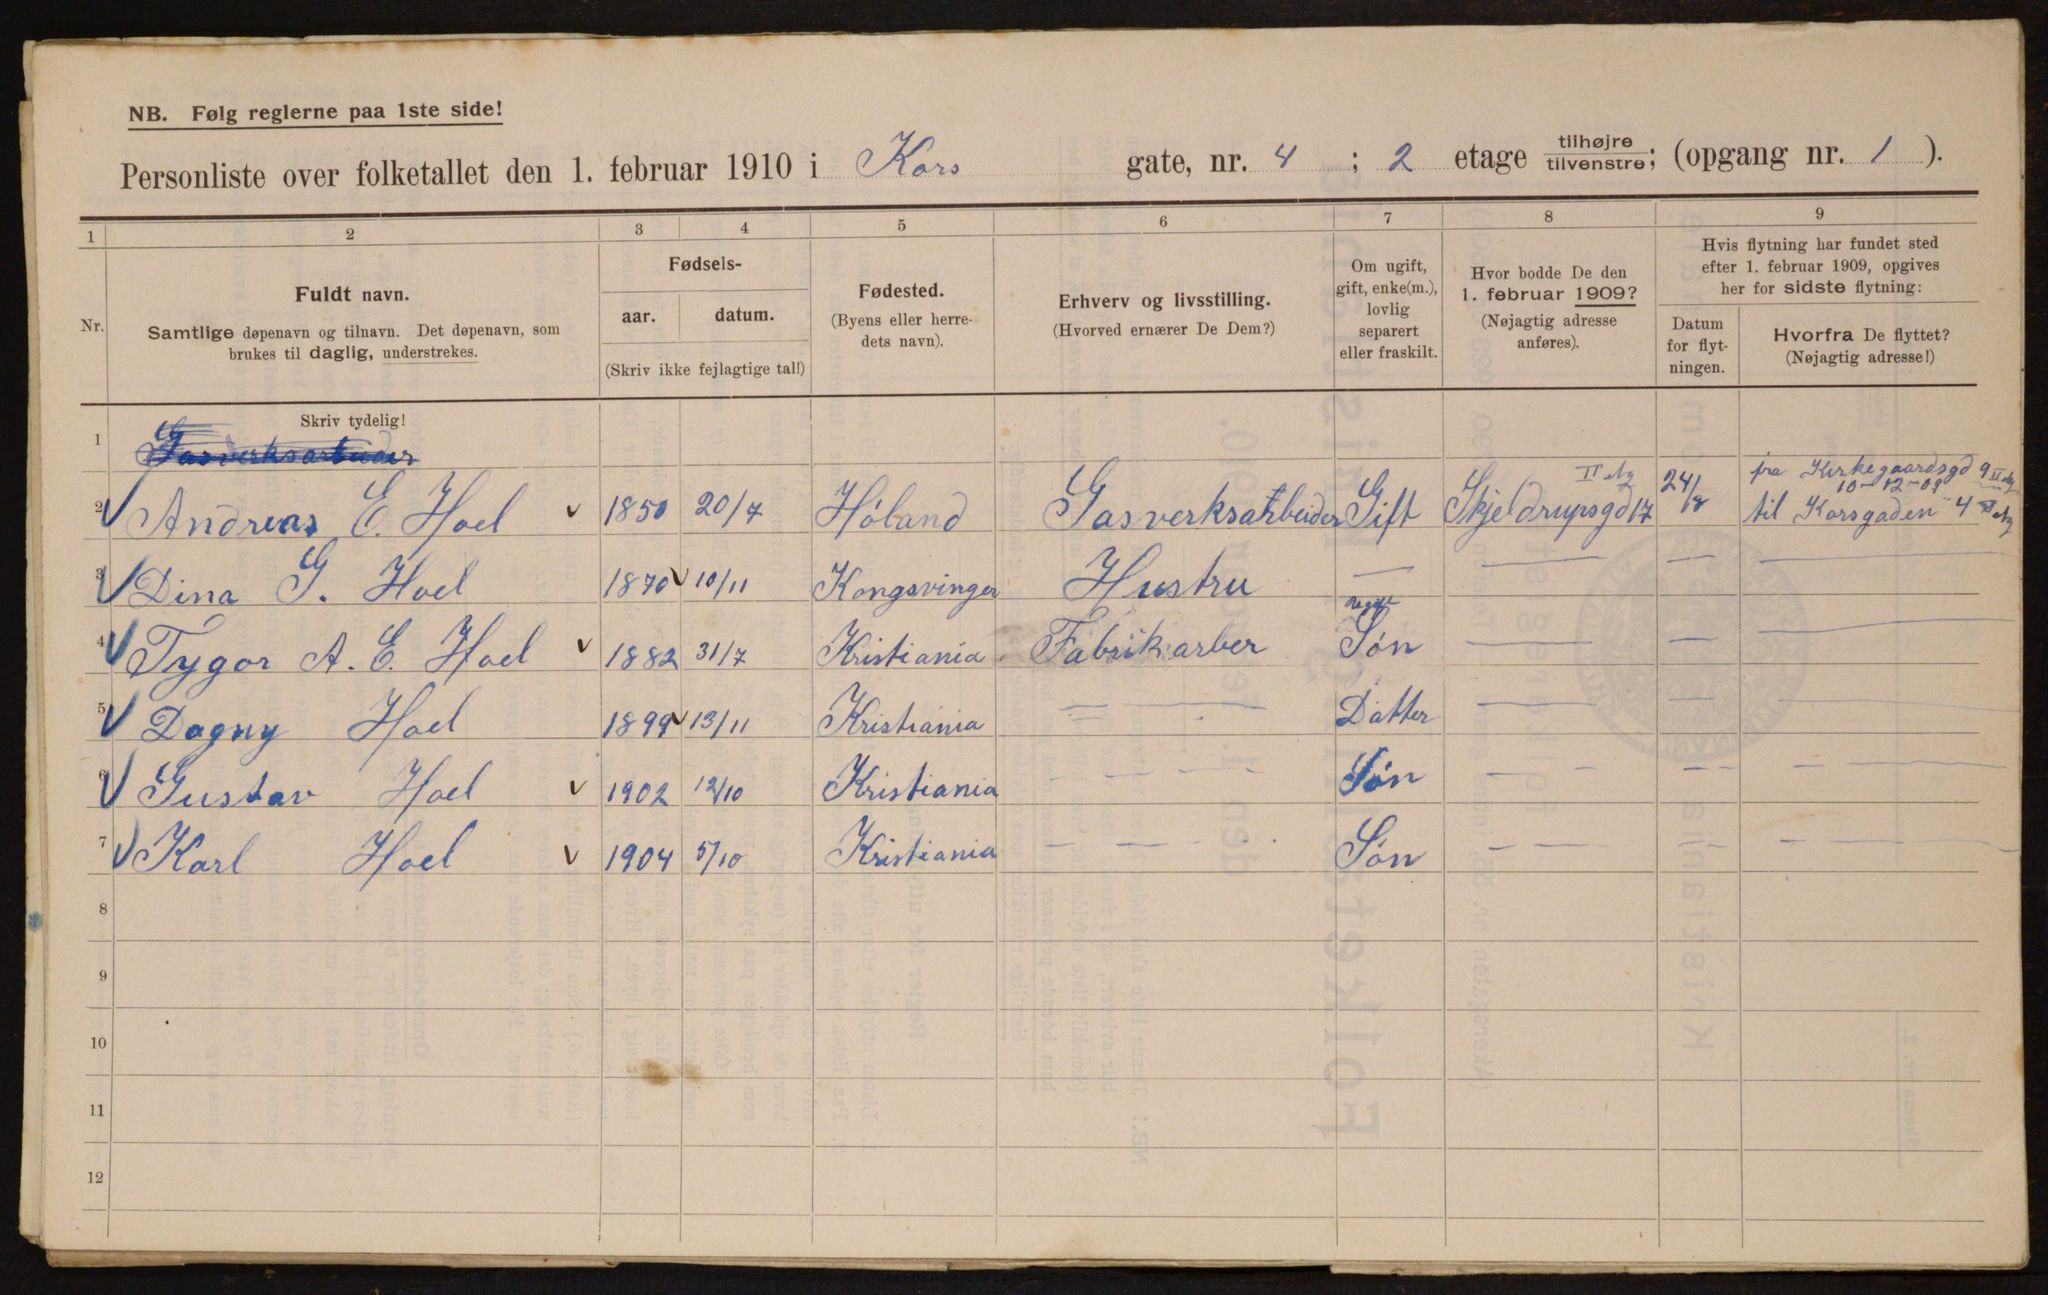 NB. Følg reglerne paa 1ste side!
Personliste over folketallet den 1. februar 1910 i Kors gate, nr. 4 ; 2 etage tilhøjre tilvenstre; (opgang nr. 1 ).
1 2 3 4 5 6 7 8 9
Nr.
Fuldt navn.
Samtlige døpenavn og tilnavn. Det døpenavn, som
brukes til daglig, understrekes.
Fødsels-
aar. datum.
(Skriv ikke fejlagtige tal!)
Fødested.
(Byens eller herre-
dets navn).
Erhverv og livsstilling.
(Hvorved ernærer De Dem?)
Om ugift,
gift, enke(m.),
lovlig
separert
eller fraskilt.
Hvor bodde De den
1. februar 1909?
(Nøjagtig adresse
anføres).
Hvis flytning har fundet sted
efter 1. februar 1909, opgives
her for sidste flytning:
Datum
for flyt-
ningen.
Hvorfra De flyttet?
(Nøjagtig adresse!)
Skriv tydelig!
1 Gasverksarbeider
2 Andreas E. Hoel 1850 20/7 Høland Gasverksarbeider Gift Skjeldrupsgd 17 II etg 24/8 fra Kirkegaardsgd 9 II etg
10-12-09
til Korsgaden 4 II etg
3 Dina G. Hoel 1870 10/11 Kongsvinger Hustru — — — —
4 Tygor A. E. Hoel 1882 31/7 Kristiania Fabrikarber Søn — — —
5 Dagny Hoel 1899 13/11 Kristiania — — Datter — — —
6 Gustav Hoel 1902 12/10 Kristiania — — — — Søn — — — — — —
7 Karl Hoel 1904 5/10 Kristiania — — — — Søn — — — — — — —
8
9
10
11
12